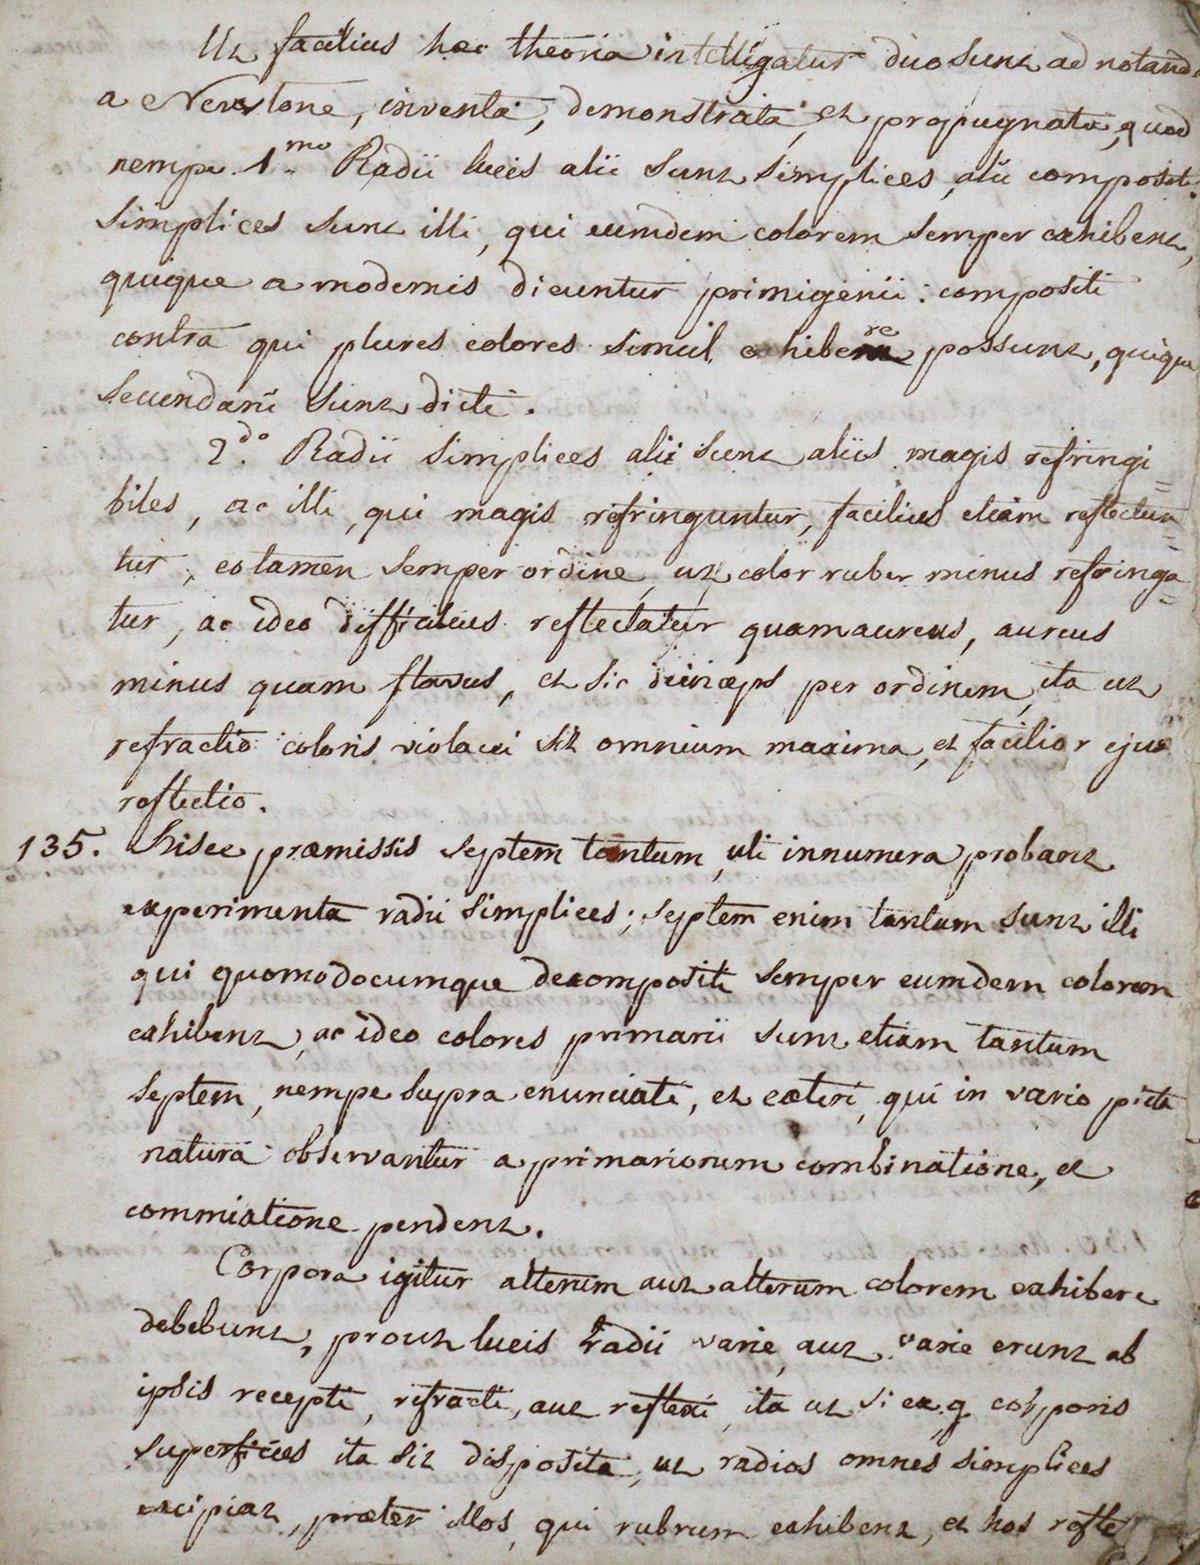 Ut facilius hæc theoria intelligatur duo sunt ad notanda
a Newtone, inventa, demonstrata, et propugnata, quod
nempe 1.mo Radii lucis alii sunt simplices, alii compositi.
simplices sunt illi, qui eumdem colorem semper exhibent,
quique a modernis dicuntur primigenii: compositi
contra qui plures colores simul exhibere possunt, quique
secundarii sunt dicti.
2.do Radii simplices alii sunt aliis magis refringi=
biles, ac illi, qui magis refringuntur, facilius etiam reflectun=
tur, eo tamen semper ordine, ut color ruber minus refringa=
tur, ac ideo difficilius reflectatur quam aureus, aureus
minus quam flavus, et sic deinceps per ordinem, ita ut
refractio coloris violacei sit omnium maxima, et facilior ejus
reflectio.
135. Hisce præmissis septem tantum, uti innumera probant
experimenta radii simplices; septem enim tantum sunt illi
qui quomodocumque decompositi semper eumdem colorem
exhibent, ac ideo colores primarii sunt etiam tantum
septem, nempe supra enunciati, et cæteri, qui in vario picti
natura observantur a primariorum combinatione, et
commixtione pendent.
Corpora igitur alterum aut alterum colorem exhibere
debebunt, prout lucis radii varie, aut varie erunt ab
ipsis recepti, refracti, aut reflexi, ita ut si ex. g. corporis
superficies ita sit disposita, ut radios omnes simplices
excipiat, præter illos, qui rubrum exhibent, et hos refle